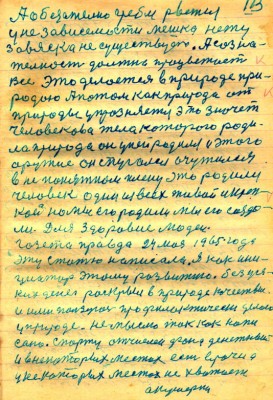 А обязательно требм рвется
у независимости мешка нету
завяска не существует. А созна-
тельност должна процветат
Все. Это делается в природе при-
родою А потом как природа от
природы это значет
человекова тела которого роди-
ла природа он у ней родился у этого
оружие он стугался очутился
в не понятном нему Это родился
человек один из всех живой и креп-
кой но мы его родили мы его созда-
ли Для здоровие людей.
газета правда 24 мая 1965 года
эту статю написала. Я как ини-
циатор этому развитию. Без всег-
раскрыв в природе качества
и ими ползуюся профилактически делаю
у природе. не мыслю так как напи
сано. Спорту отчислен фонд денежный
и в некоторых местах есть врачи а
у некоторых местах не хватает
акушерки